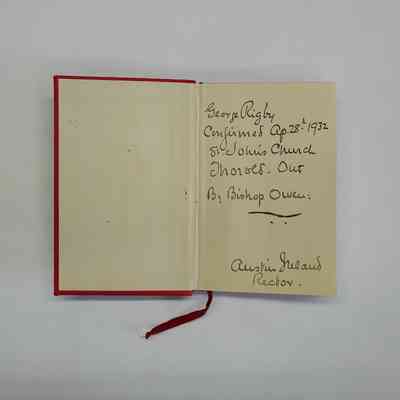 George Rigby
Confirmed Ap. 28th 1932
St John's Church
Thorold. Ont
By Bishop Owen.
Austin Ireland
Rector.